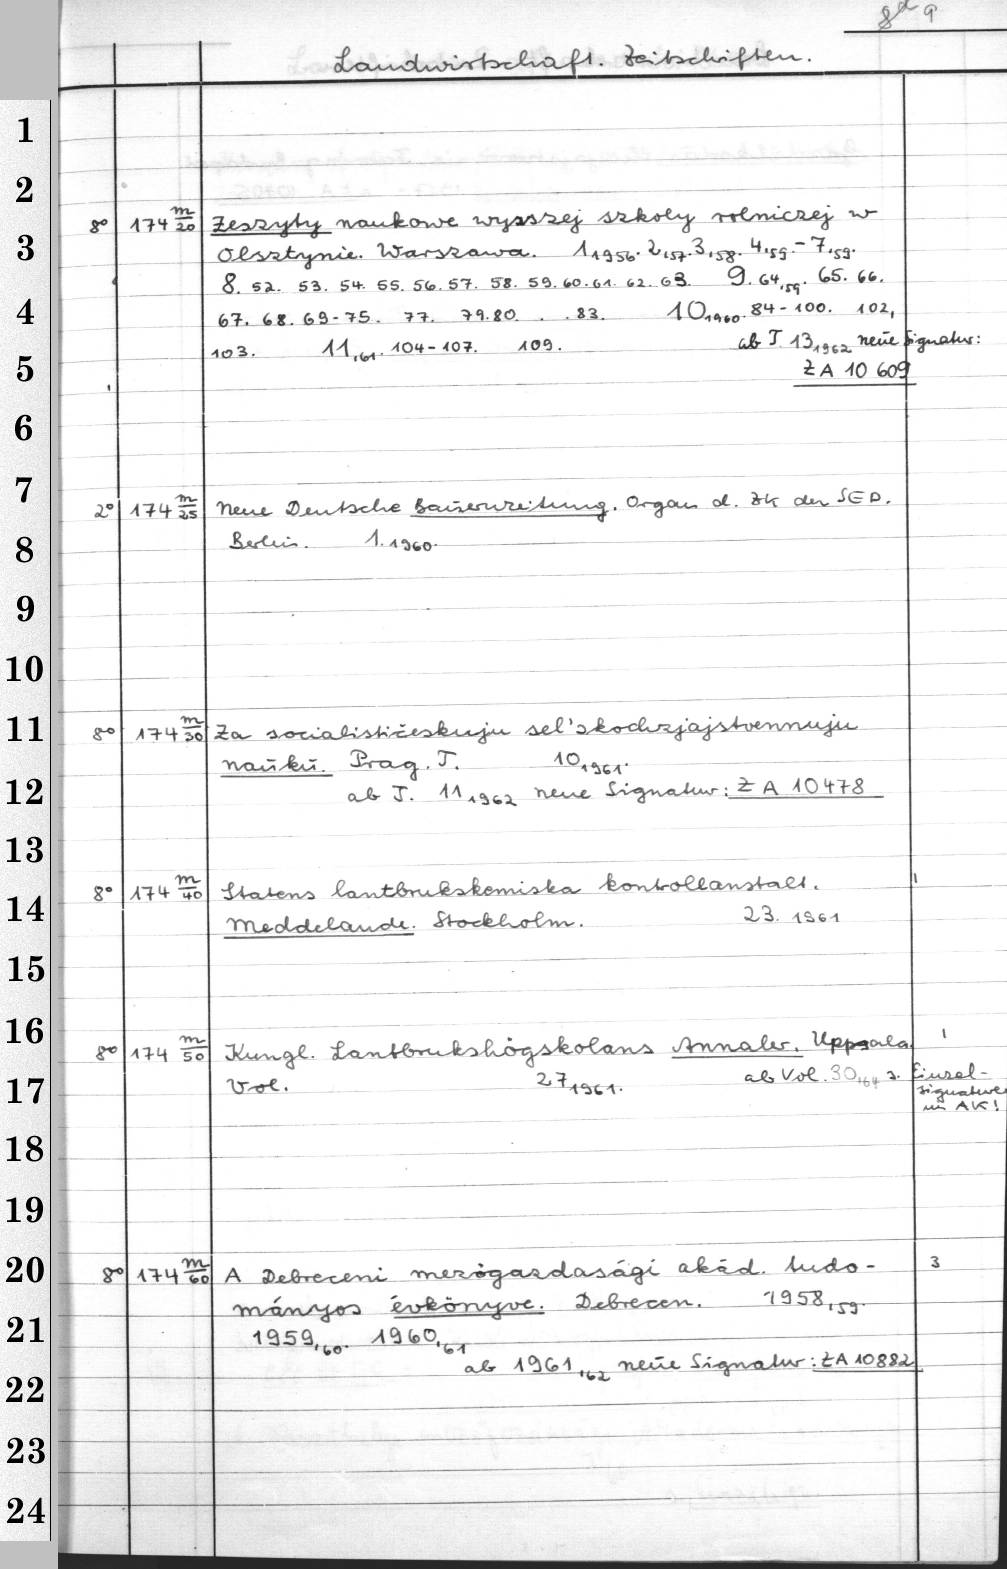 8d 9
Landwirtschaft. Zeitschriften.
1
2
8° 174 m/20 Zeszyty naukowe wyższej szkoły rolniczej w
3
Olsztynie. Warszawa. 1,1956. 2,57. 3,58. 4,59.-7,59.
8. 52. 53. 54. 55. 56. 57. 58. 59. 60. 61. 62. 63. 9. 64,59. 65. 66.
4
67. 68. 69-75. 77. 79. 80. . . 83. 10,1960. 84-100. 102,
103. 11,61. 104-107. 109. ab J. 13,1962 neue Signatur:
5
ZA 10 609
6
7
2° 174 m/25 Neue Deutsche Bauernzeitung. Organ d. ZK der SED.
8
Berlin. 1.1960.
9
10
11
8° 174 m/30 Za socialističeskuju sel'skochozjajstvennuju
nauku. Prag. T. 10,1961.
12
ab J. 11,1962 neue Signatur: ZA 10478
13
8° 174 m/40 Statens lantbrukskemiska kontrollanstalt. 1
14
Meddelande. Stockholm. 23. 1961
15
16
8° 174 m/50 Kungl. Lantbrukshögskolans Annaler. Uppsala. 1
17
Vol. 27,1961. ab Vol. 30,64 s. Einzel-
signaturen
im AK!
18
19
20
8° 174 m/60 A Debreceni mezőgazdasági akad. tudo- 3
mányos évkönyve. Debrecen. 1958,59.
21
1959,60. 1960,61
ab 1961,62 neue Signatur: ZA 10882
22
23
24